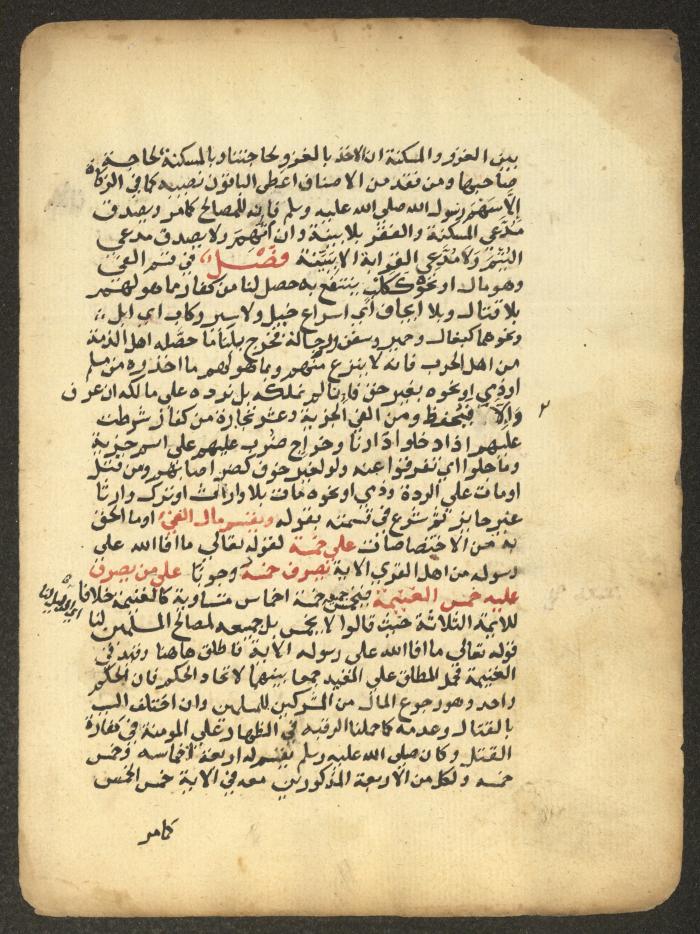 بين الغزو والمسكنة ان الاخذ بالغزو لحاجتنا وبالمسكنة لحاجة
صاحبها ومن فقد من الاصناف اعطى الباقون نصيبه كما في الزكاة
الا سهم رسول الله صلى الله عليه وسلم فانه للمصالح كما مر ويصدق
مدعي المسكنة والفقر بلا بينة وان اتهم ولا يصدق مدعي
اليتم ولا مدعي القرابة الا ببينة فصل في قسم الفيء
وهو مال او نحوه ككلب ينتفع به حصل لنا من كفار مما هو لهم
بلا قتال وبلا ايجاف اي اسراع خيل ولا سير ركاب اي ابل
ونحوهما كبغال وحمير وسفن ورجالة فخرج بلنا ما حصله اهل الذمة
من اهل الحرب فانه لا ينزع منهم وبما هو لهم ما اخذوه من مسلم
او ذمي او نحوه بغير حق فانا لم نملكه بل نرده على مالكه ان عرف
والا فيحفظ ومن الفي الجزية وعشر تجارة من كفار شرطت
عليهم اذا دخلوا دارنا وخراج ضرب عليهم على اسم جزية
وما جلوا اي تفرقوا عنه ولو لغير خوف كضر اصابهم ومن قتل
او مات على الردة وذمي او نحوه مات بلا وارث او ترك وارثا
غير حايز ثم شرع في قسمته بقوله ويقسم مال الفيء او ما الحق
به من الاختصاصات على خمسة لقوله تعالى ما افا الله على
رسوله من اهل القرى الاية يصرف خمسه وجوبا على من يصرف
عليه خمس الغنيمة فيخمس جميعه خمسة اخماس متساوية كالغنيمة خلافا
للايمة الثلاثة حيث قالوا لا يخمس بل جميعه لمصالح المسلمين لنا
قوله تعالى ما افا الله على رسوله الاية فاطلق هاهنا وقيد في
الغنيمة فحمل المطلق على المقيد جمعا بينهما لاتحاد الحكم فان الحكم
واحد وهو رجوع المال من المشركين للمسلمين وان اختلف السبب
بالقتال وعدمه كما حملنا الرقبة في الظهار على المومنة في كفارة
القتل وكان صلى الله عليه وسلم يقسم له اربعة اخماسه وخمس
خمسه ولكل من الاربعة المذكورين معه في الاية خمس الخمس
كما مر